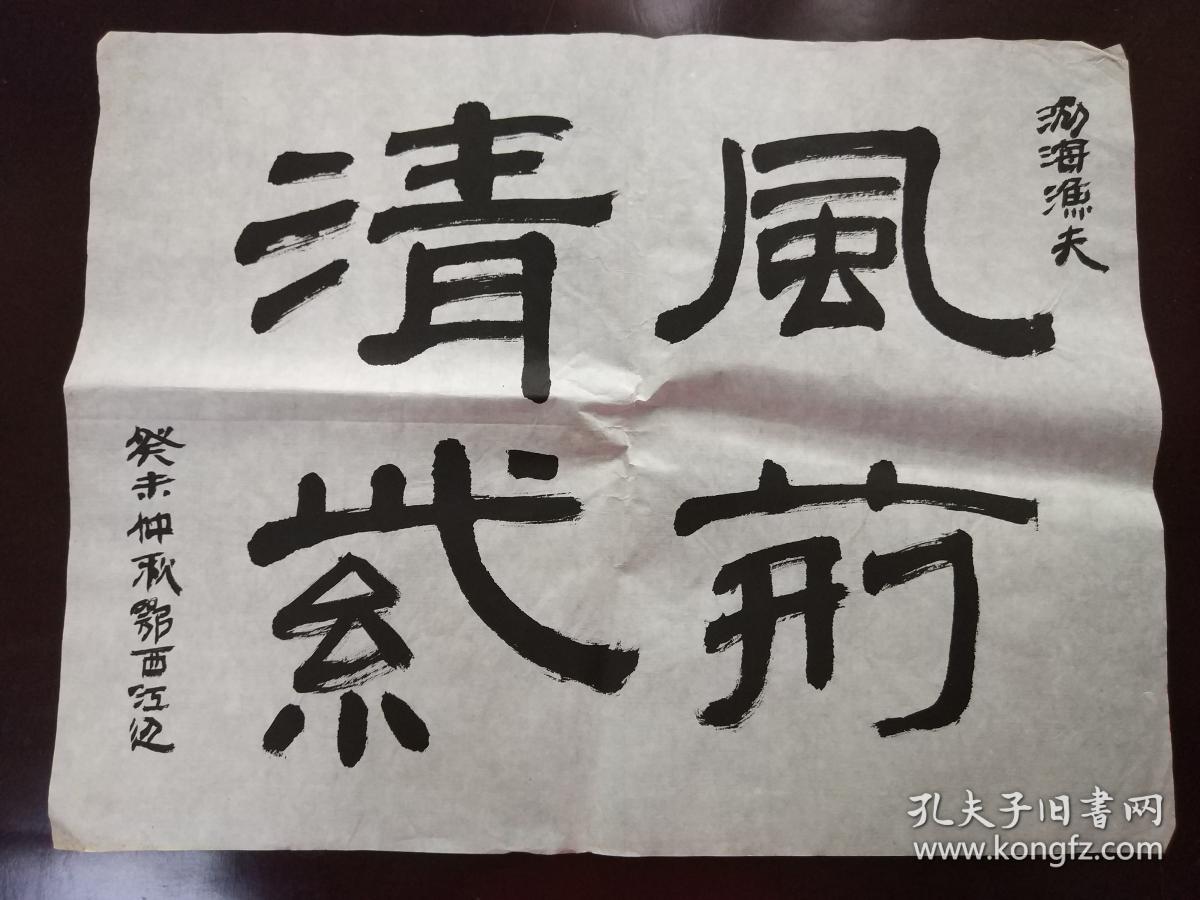 渤海漁夫
清風
紫荊
癸未仲秋鄂西江边
孔夫子旧書网
www.kongfz.com